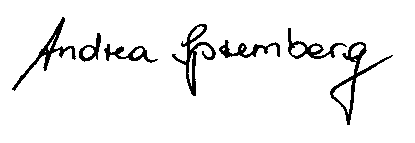 Andrea Spremberg